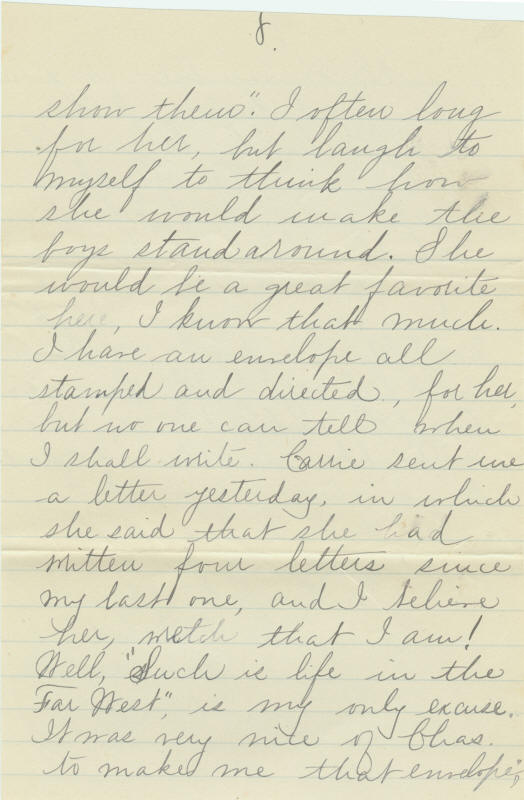 8.
show them". I often long
for her, but laugh to
myself to think how
she would make the
boys stand around. She
would be a great favorite
here, I know that much.
I have an envelope all
stamped and directed, for her,
but no one can tell when
I shall write. Carrie sent me
a letter yesterday, in which
she said that she had
written four letters since
my last one, and I believe
her, wretch that I am!
Well, "Such is life in the
Far West", is my only excuse.
It was very nice of Chas.
to make me that envelope;